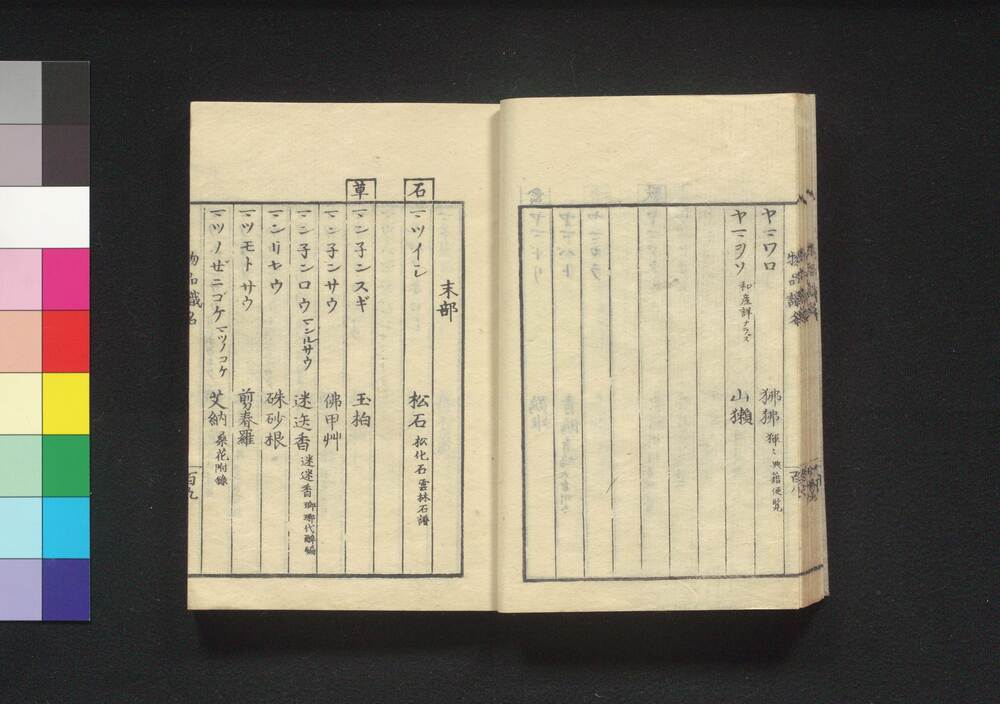 ヤマワロ 狒狒 狒〻 典籍便覧
ヤマヲソ 和産詳ナラズ 山獺
末部
石
マツイシ 松石 松化石 雲林石譜
草
マン子ンスギ 玉柏
マン子ンサウ 佛甲艸
マン子ンロウ マンルサウ 迷迭香 迷迷香 瑯琊代醉編
マンリヤウ 硃砂根
マツモトサウ 剪春羅
マツノゼニゴケ マツノコケ 艾納 桑花附録
物品識名
百九